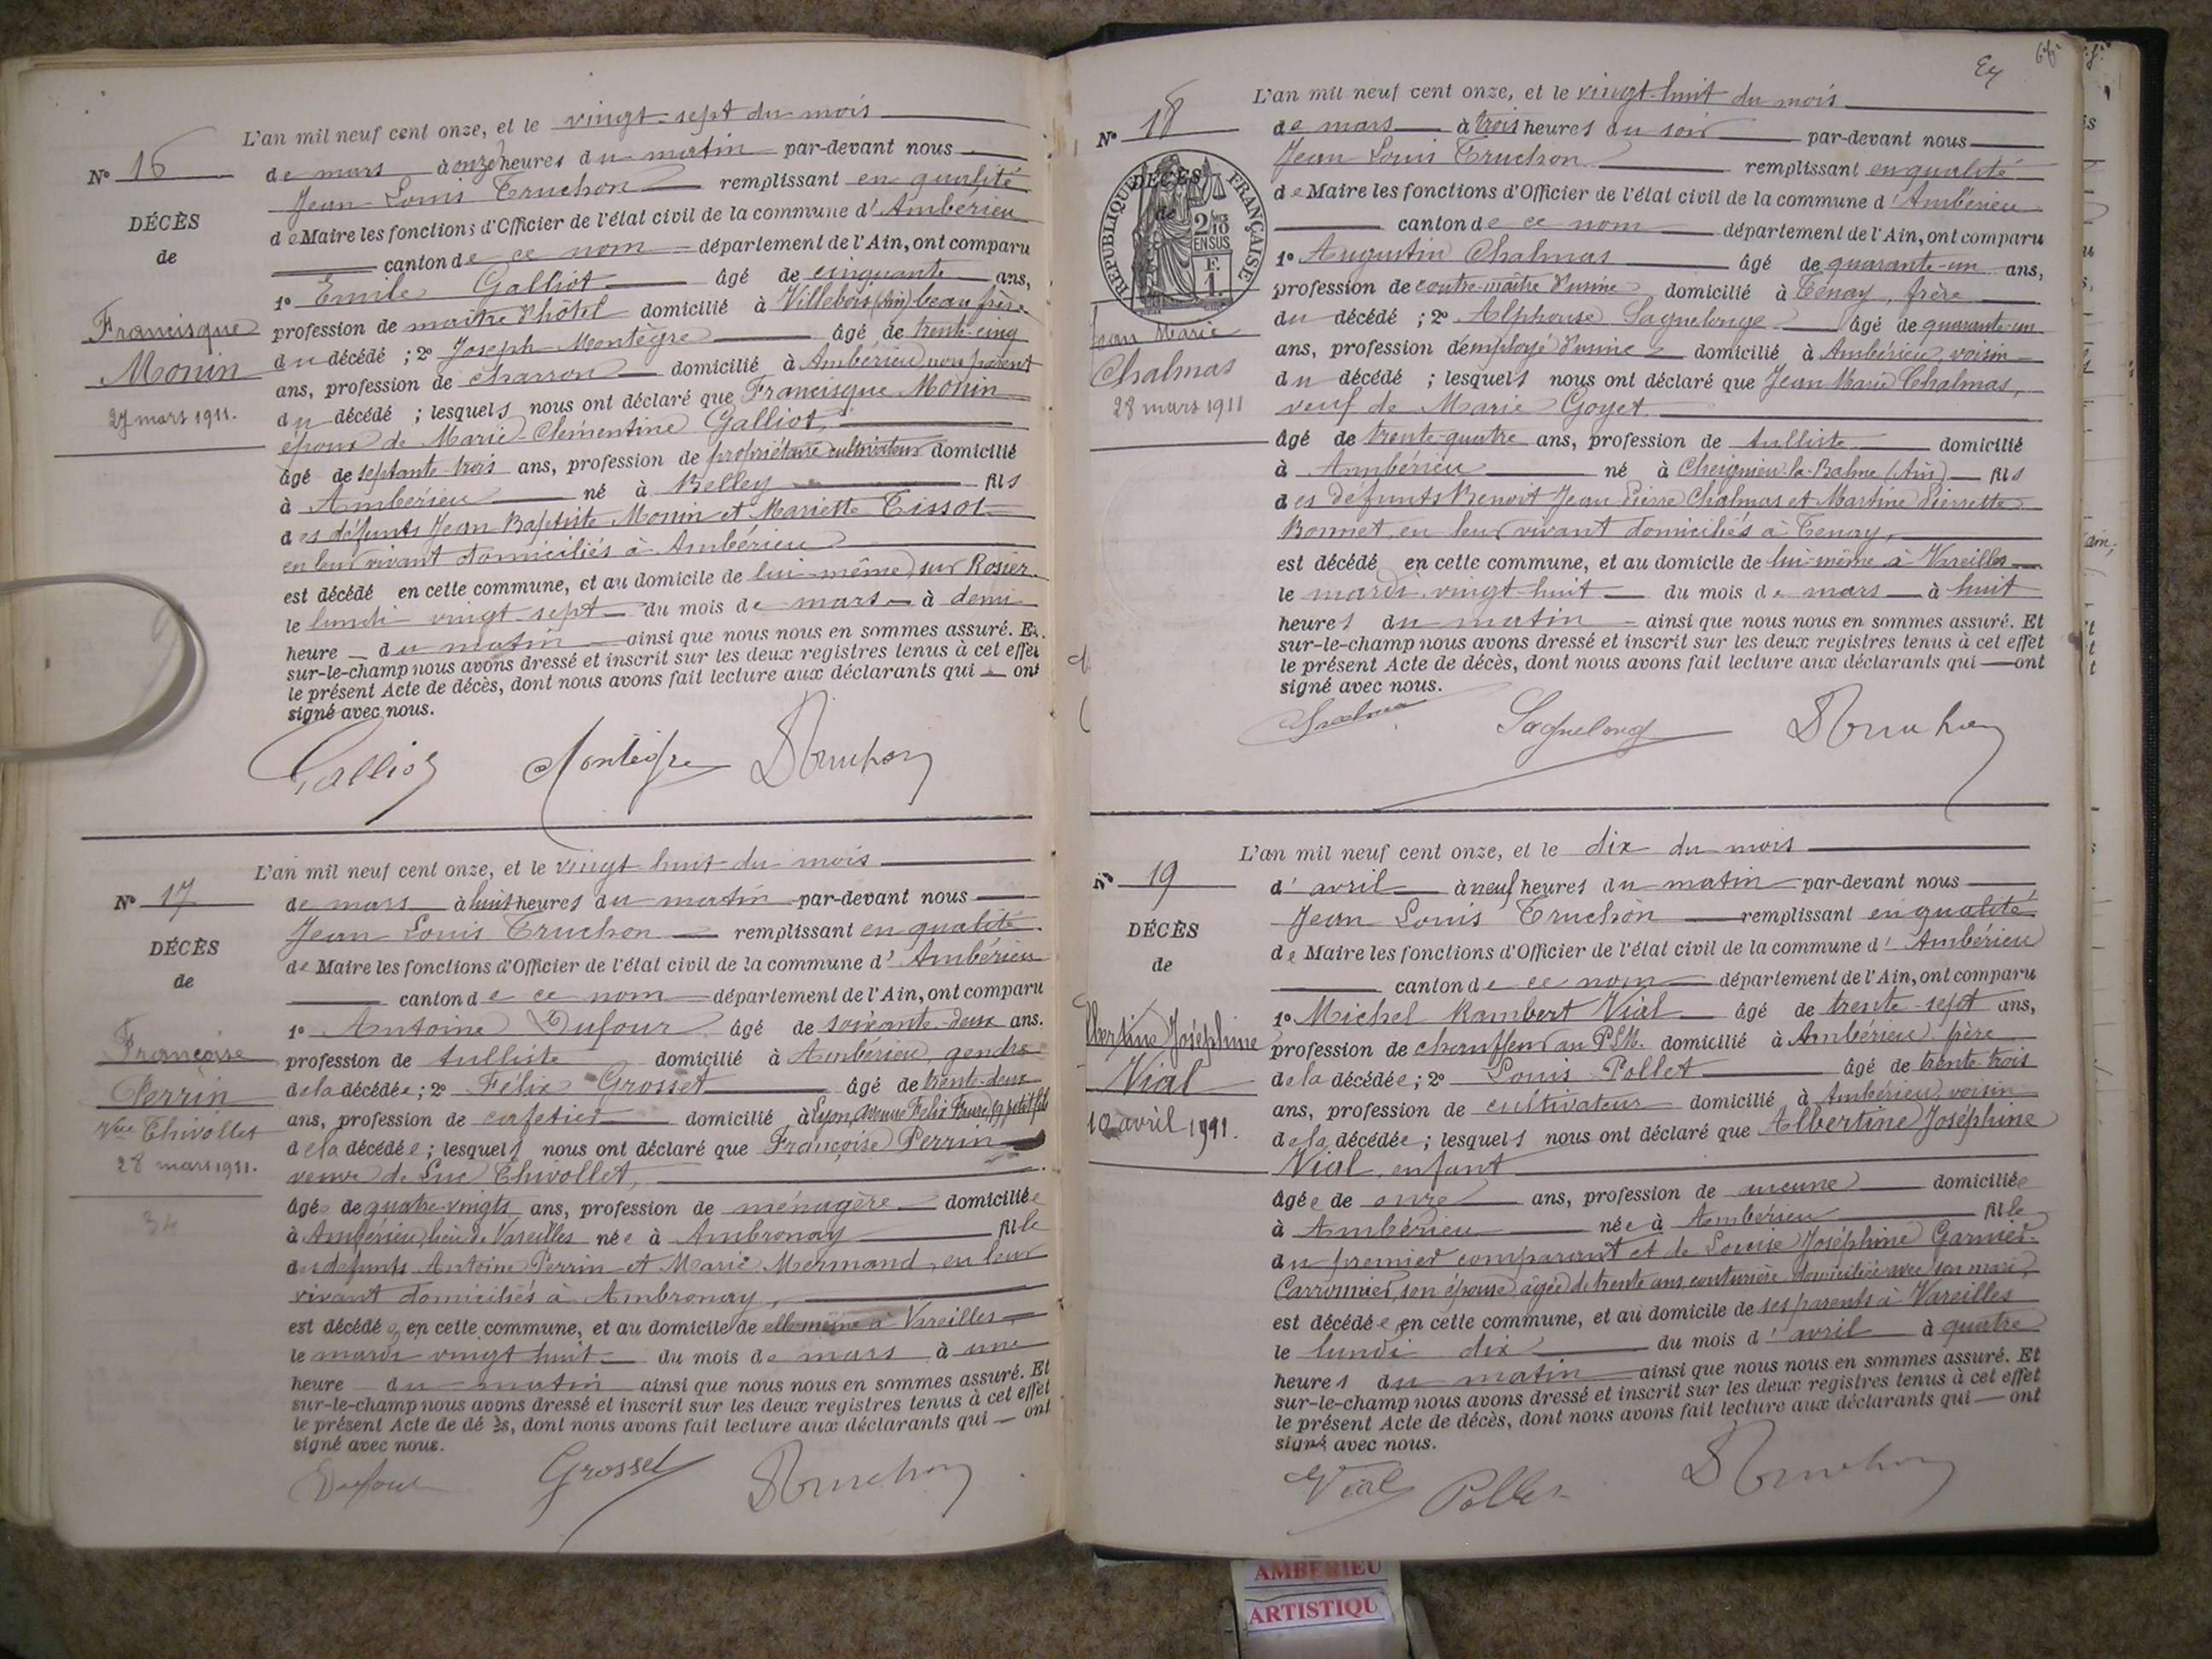 L'an mil neuf cent onze, et le vingt-sept du mois
N° 16
de mars à onze heures du matin par-devant nous
Jean Louis Truchon remplissant en qualité
DÉCÈS
de Maire les fonctions d'Officier de l'état civil de la commune d'Ambérieu
de
canton de ce nom département de l'Ain, ont comparu
1° Emile Galliot âgé de cinquante ans,
Francisque
profession de maître d'hôtel domicilié à Villebois (Ain) beau frère
Monin
du décédé ; 2° Joseph Montègre âgé de trente-cinq
ans, profession de charron domicilié à Ambérieu non parent
27 mars 1911.
du décédé ; lesquels nous ont déclaré que Francisque Monin
époux de Marie-Clémentine Galliot,
âgé de septante-trois ans, profession de propriétaire cultivateur domicilié
à Ambérieu né à Belley fils
des défunts Jean Baptiste Monin et Mariette Tissot
en leur vivant domiciliés à Ambérieu
est décédé en cette commune, et au domicile de lui-même, sur Rosier
le lundi vingt sept du mois de mars à demi
heure du matin ainsi que nous nous en sommes assuré. Et
sur-le-champ nous avons dressé et inscrit sur les deux registres tenus à cet effet
le présent Acte de décès, dont nous avons fait lecture aux déclarants qui ont
signé avec nous.
Galliot Montègre Truchon
L'an mil neuf cent onze, et le vingt huit du mois
N° 17
de mars à huit heures du matin par-devant nous
Jean Louis Truchon remplissant en qualité
DÉCÈS
de Maire les fonctions d'Officier de l'état civil de la commune d'Ambérieu
de
canton de ce nom département de l'Ain, ont comparu
1° Antoine Dufour âgé de soixante-deux ans.
Françoise
profession de tulliste domicilié à Ambérieu, gendre
Perrin
de la décédée ; 2° Félix Grosset âgé de trente-deux
ans, profession de cafetier domicilié à Lyon, avenue Félix Faure, 19 petit fils
Vve Thivollet
de la décédée ; lesquels nous ont déclaré que Françoise Perrin
28 mars 1911.
veuve de Luc Thivollet,
âgée de quatre-vingts ans, profession de ménagère domiciliée
34
à Ambérieu, lieu de Vareilles née à Ambronay fille
des défunts Antoine Perrin et Marie Mermand, en leur
vivant domiciliés à Ambronay,
est décédée en cette commune, et au domicile de elle même à Vareilles
le mardi vingt huit du mois de mars à une
heure du matin ainsi que nous nous en sommes assuré. Et
sur-le-champ nous avons dressé et inscrit sur les deux registres tenus à cet effet
le présent Acte de décès, dont nous avons fait lecture aux déclarants qui ont
signé avec nous.
Dufour Grosset Truchon
L'an mil neuf cent onze, et le vingt-huit du mois
N° 18
de mars à trois heures du soir par-devant nous
Jean Louis Truchon remplissant en qualité
DÉCÈS
de
RÉPUBLIQUE FRANÇAISE
2/10 EN SUS
de Maire les fonctions d'Officier de l'état civil de la commune d'Ambérieu
canton de ce nom département de l'Ain, ont comparu
1° Augustin Chalmas âgé de quarante-un ans,
profession de contre-maître d'usine domicilié à Tenay, frère
Jean Marie
du décédé ; 2° Alphonse Sagnelonge âgé de quarante-un
ans, profession d'employé d'usine domicilié à Ambérieu, voisin
Chalmas
du décédé ; lesquels nous ont déclaré que Jean Marie Chalmas,
28 mars 1911
veuf de Marie Goyet
âgé de trente-quatre ans, profession de tulliste domicilié
à Ambérieu né à Cheignieu-la-Balme (Ain) fils
des défunts Benoit Jean Pierre Chalmas et Martine Pierrette
Bonnet, en leur vivant domiciliés à Tenay,
est décédé en cette commune, et au domicile de lui-même à Vareilles
le mardi vingt-huit du mois de mars à huit
heures du matin ainsi que nous nous en sommes assuré. Et
sur-le-champ nous avons dressé et inscrit sur les deux registres tenus à cet effet
le présent Acte de décès, dont nous avons fait lecture aux déclarants qui ont
signé avec nous.
Chalmas Sagnelong Truchon
L'an mil neuf cent onze, et le dix du mois
N° 19
d'avril à neuf heures du matin par-devant nous
Jean Louis Truchon remplissant en qualité
DÉCÈS
de Maire les fonctions d'Officier de l'état civil de la commune d'Ambérieu
de
canton de ce nom département de l'Ain, ont comparu
1° Michel Rambert Vial âgé de trente-sept ans,
Albertine Joséphine
profession de chauffeur au PLM. domicilié à Ambérieu père
Vial
de la décédée ; 2° Louis Pollet âgé de trente-trois
ans, profession de cultivateur domicilié à Ambérieu, voisin
10 avril 1911.
de la décédée ; lesquels nous ont déclaré que Albertine Joséphine
Vial, enfant
âgée de onze ans, profession de aucune domiciliée
à Ambérieu née à Ambérieu fille
du premier comparant et de Louise Joséphine Garnier-
Carronnier, son épouse âgée de trente ans, couturière domiciliée avec son mari,
est décédée en cette commune, et au domicile de ses parents à Vareilles
le lundi dix du mois d'avril à quatre
heures du matin ainsi que nous nous en sommes assuré. Et
sur-le-champ nous avons dressé et inscrit sur les deux registres tenus à cet effet
le présent Acte de décès, dont nous avons fait lecture aux déclarants qui ont
signé avec nous.
Vial Pollet Truchon
AMBERIEU
ARTISTIQU